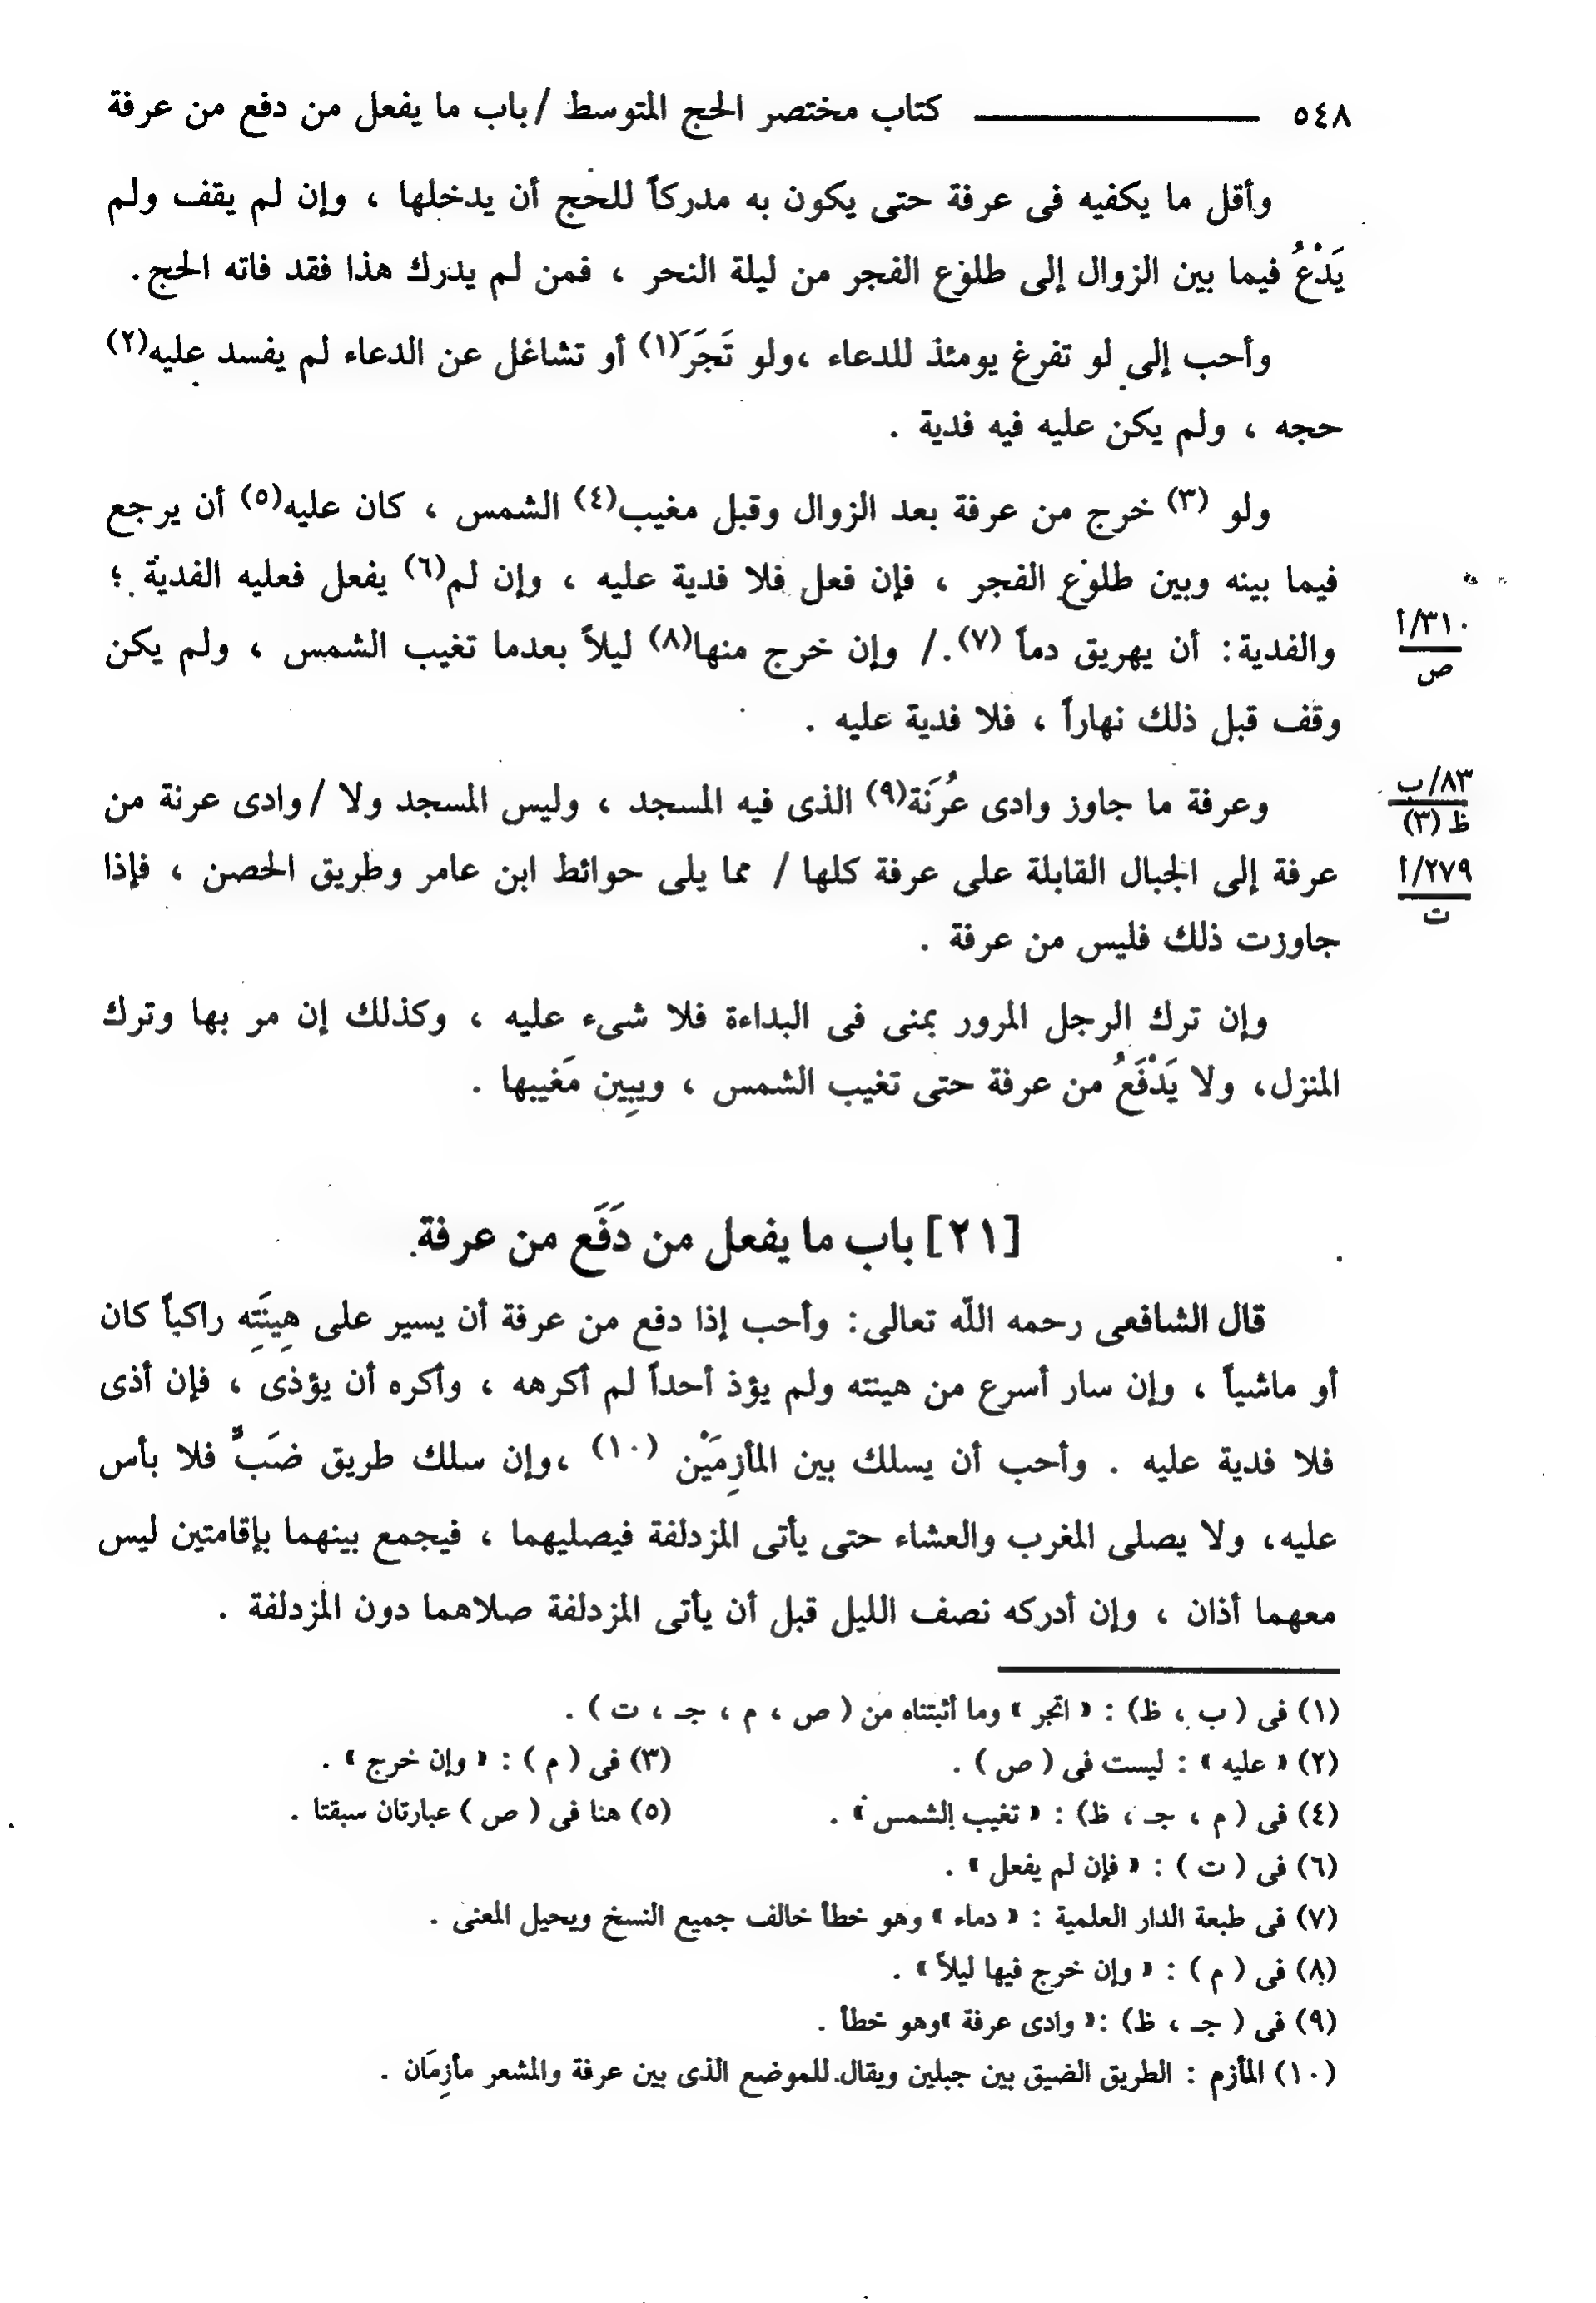 ٥٤٨ ــــــــــــــــ كتاب مختصر الحج المتوسط / باب ما يفعل من دفع من عرفة
وأقل ما يكفيه فى عرفة حتى يكون به مدركاً للحج أن يدخلها ، وإن لم يقف ولم
يَدْعُ فيما بين الزوال إلى طلوع الفجر من ليلة النحر ، فمن لم يدرك هذا فقد فاته الحج .
وأحب إلى لو تفرغ يومئذ للدعاء ،ولو تَجَرَ(١) أو تشاغل عن الدعاء لم يفسد عليه(٢)
حجه ، ولم يكن عليه فيه فدية .
ولو (٣) خرج من عرفة بعد الزوال وقبل مغيب(٤) الشمس ، كان عليه(٥) أن يرجع
فيما بينه وبين طلوع الفجر ، فإن فعل فلا فدية عليه ، وإن لم(٦) يفعل فعليه الفدية ؛
٣١٠/أ
ص
والفدية: أن يهريق دماً (٧)./ وإن خرج منها(٨) ليلاً بعدما تغيب الشمس ، ولم يكن
وقف قبل ذلك نهاراً ، فلا فدية عليه .
٨٣/ب
ظ (٣)
وعرفة ما جاوز وادى عُرَنَة(٩) الذى فيه المسجد ، وليس المسجد ولا /وادى عرنة من
٢٧٩/أ
ت
عرفة إلى الجبال القابلة على عرفة كلها / مما يلى حوائط ابن عامر وطريق الحصن ، فإذا
جاوزت ذلك فليس من عرفة .
وإن ترك الرجل المرور بمنى فى البداءة فلا شىء عليه ، وكذلك إن مر بها وترك
المنزل، ولا يَدْفَعُ من عرفة حتى تغيب الشمس ، ويبِين مَغيبها .
[٢١] باب ما يفعل من دَفَعَ من عرفة
قال الشافعى رحمه اللّه تعالى: وأحب إذا دفع من عرفة أن يسير على هِينَتِه راكباً كان
أو ماشياً ، وإن سار أسرع من هينته ولم يؤذ أحداً لم أكرهه ، وأكره أن يؤذى ، فإن أذى
فلا فدية عليه . وأحب أن يسلك بين المأزِمَيْن (١٠) ،وإن سلك طريق ضَبٍّ فلا بأس
عليه، ولا يصلى المغرب والعشاء حتى يأتى المزدلفة فيصليهما ، فيجمع بينهما بإقامتين ليس
معهما أذان ، وإن أدركه نصف الليل قبل أن يأتى المزدلفة صلاهما دون المزدلفة .
(١) فى ( ب ، ظ) : « اتجر » وما أثبتناه من ( ص ، م ، جـ ، ت ) .
(٢) « عليه » : ليست فى ( ص ) . (٣) فى ( م ) : « وإن خرج » .
(٤) فى ( م ، جـ ، ظ) : « تغيب الشمس » . (٥) هنا فى ( ص ) عبارتان سبقتا .
(٦) فى ( ت ) : « فإن لم يفعل » .
(٧) فى طبعة الدار العلمية : « دماء » وهو خطأ خالف جميع النسخ ويحيل المعنى .
(٨) فى ( م ) : « وإن خرج فيها ليلاً » .
(٩) فى ( جـ ، ظ) :« وادى عرفة »وهو خطأ .
(١٠) المأزم : الطريق الضيق بين جبلين ويقال للموضع الذى بين عرفة والمشعر مأزِمَان .